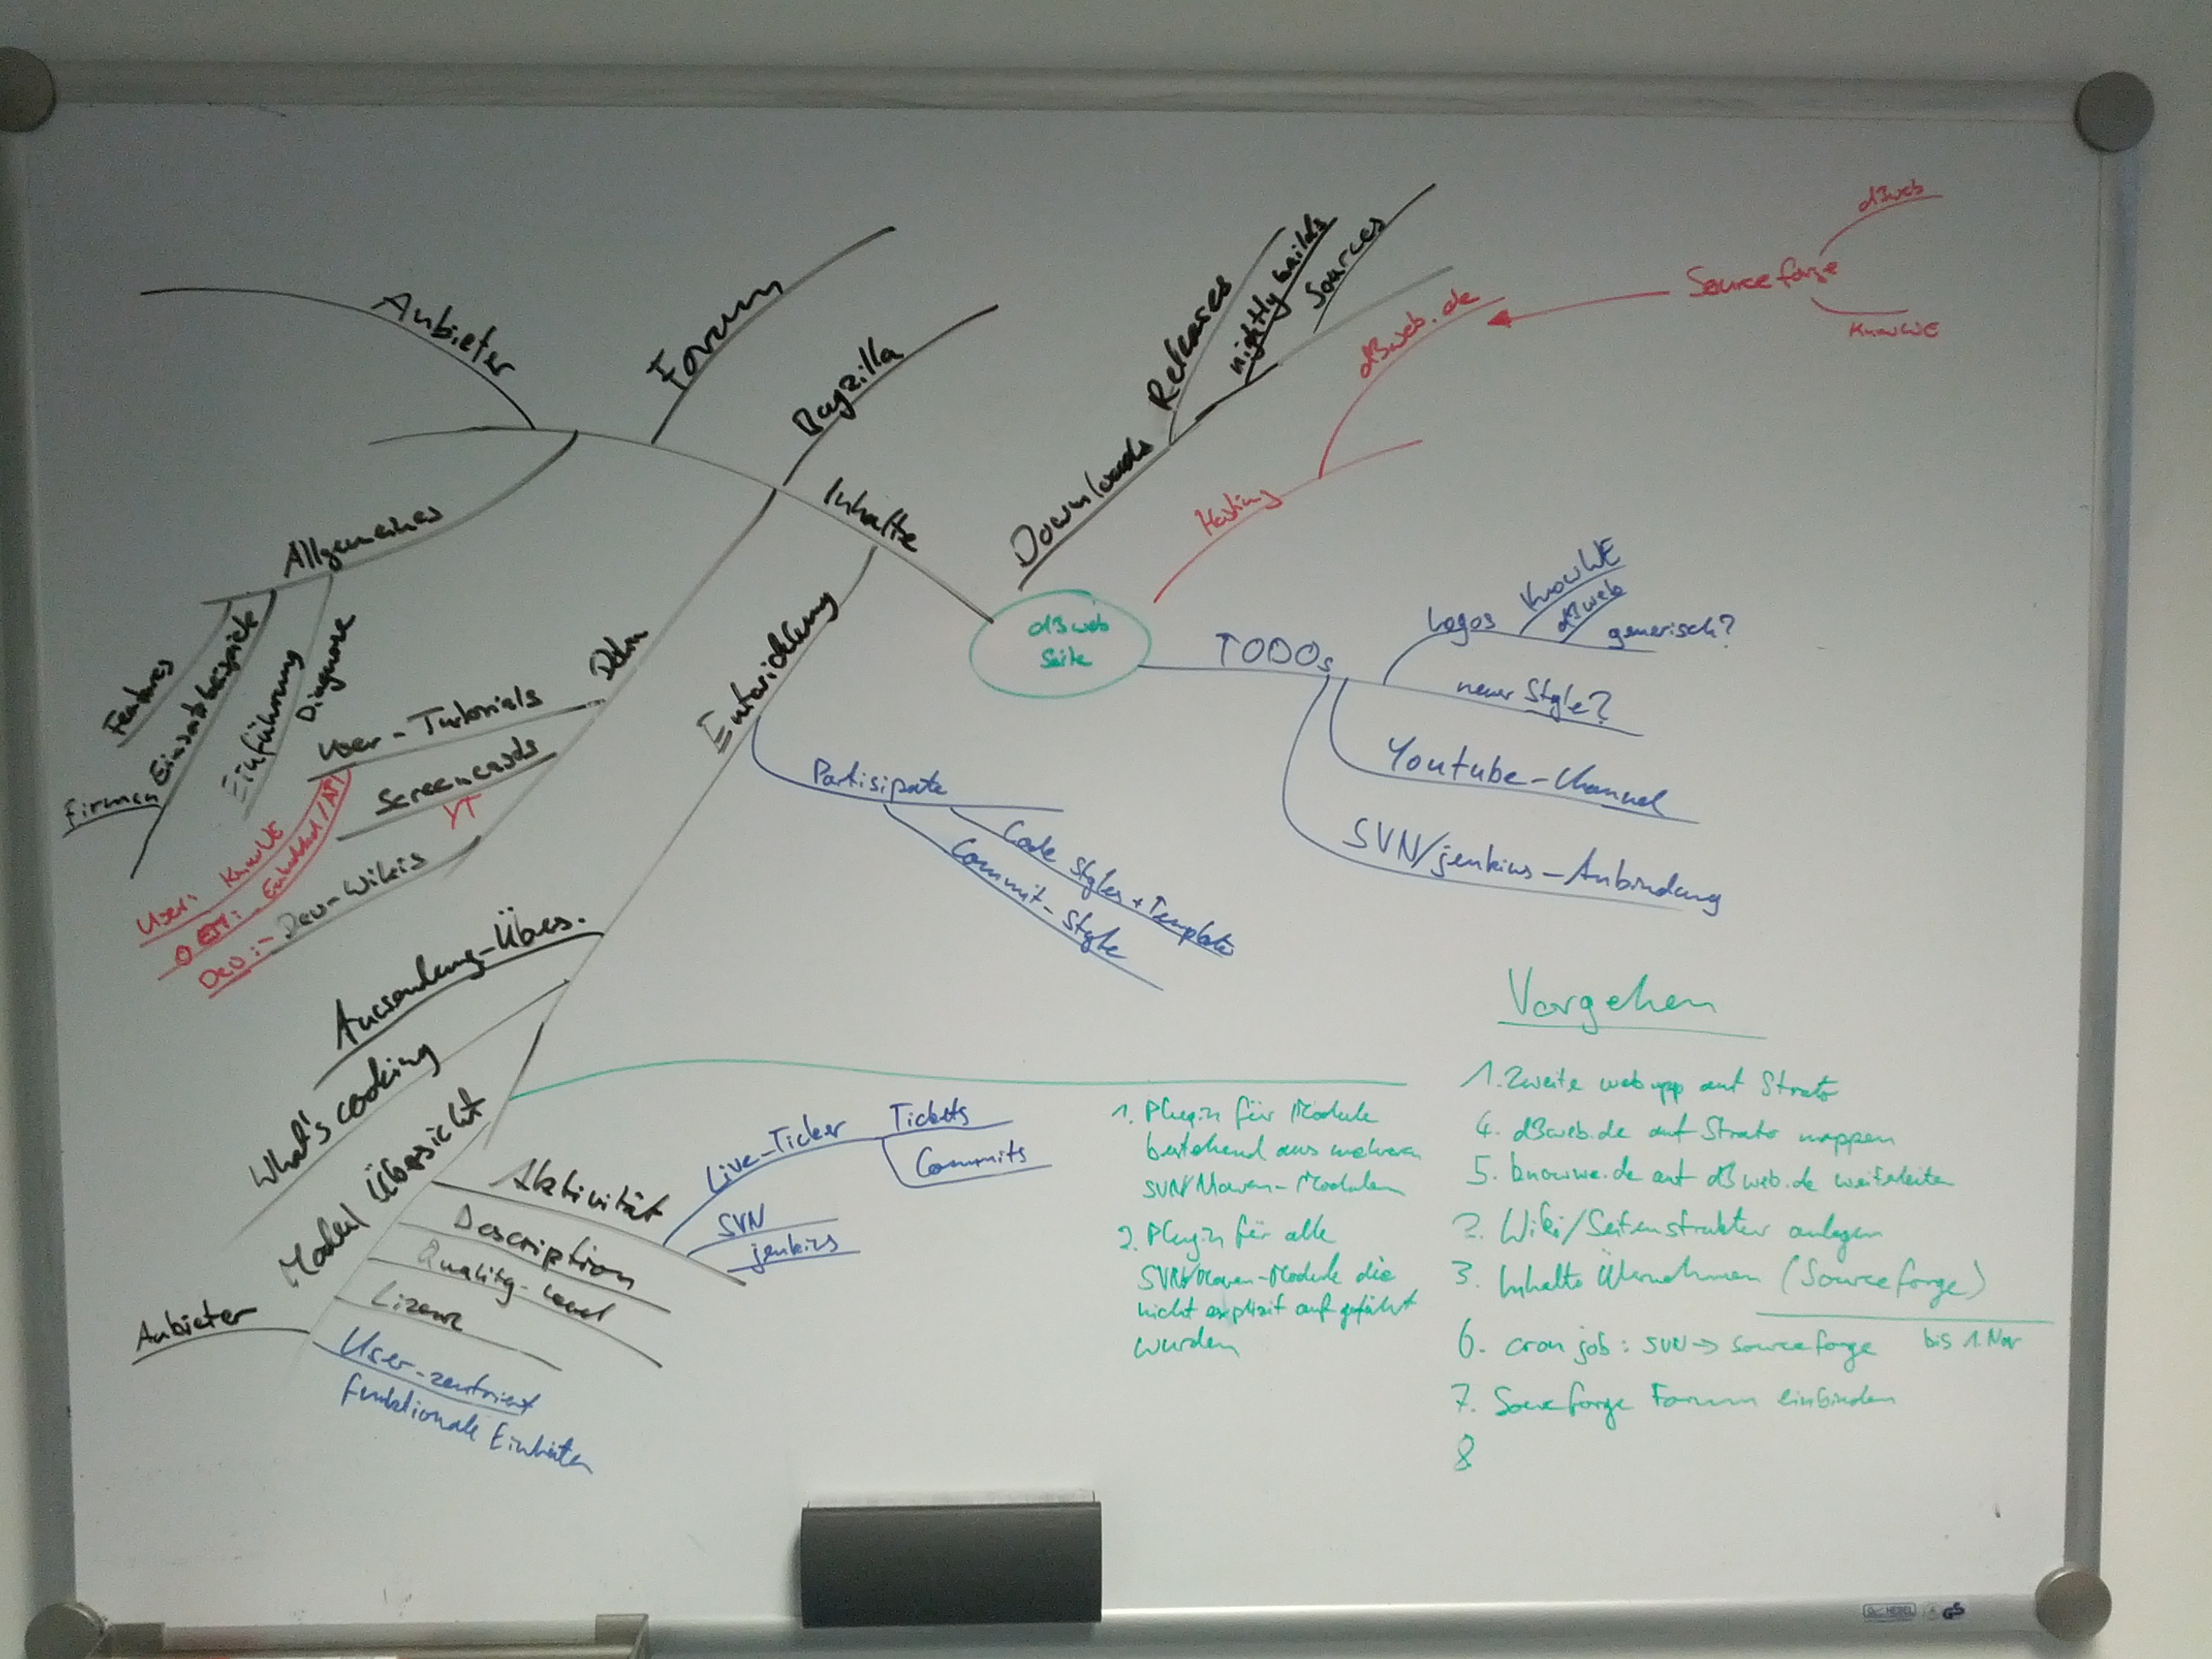 d3web
Seite
Inhalte
Anbieter
Forum
Bugzilla
Allgemeines
Features
Einsatzbeispiele
Firmen
Einführung
Diagnose
Doku
User-Tutorials
Screencasts
YT
Dev-Wikis
User: KnowWE
Embedded/API
Dev:
Entwicklung
Partisipate
Code Styles + Template
Commit-Style
Anwendung-Übers.
What's cooking
Modul Übersicht
Aktivität
Live-Ticker
Tickets
Commits
SVN
jenkins
Description
Quality-Level
Lizenz
Anbieter
User-zentriert
funktionale Einheiten
1. Plugin für Module
bestehend aus mehreren
SVN/Maven-Modulen
2. Plugin für alle
SVN/Maven-Module die
nicht explizit aufgeführt
wurden
Downloads
Releases
nightly builds
Sources
Hosting
d3web.de
Sourceforge
d3web
KnowWE
TODOs
Logos
KnowWE
d3web
generisch?
neuer Style?
Youtube-Channel
SVN/jenkins-Anbindung
Vorgehen
1. Zweite webapp auf Strato
4. d3web.de auf Strato mappen
5. knowwe.de auf d3web.de weiterleiten
2. Wiki/Seitenstruktur anlegen
3. Inhalte Übernehmen (Sourceforge)
bis 1. Nov
6. cron job: SVN → sourceforge
7. Sourceforge Forum einbinden
8
HEBEL
GS